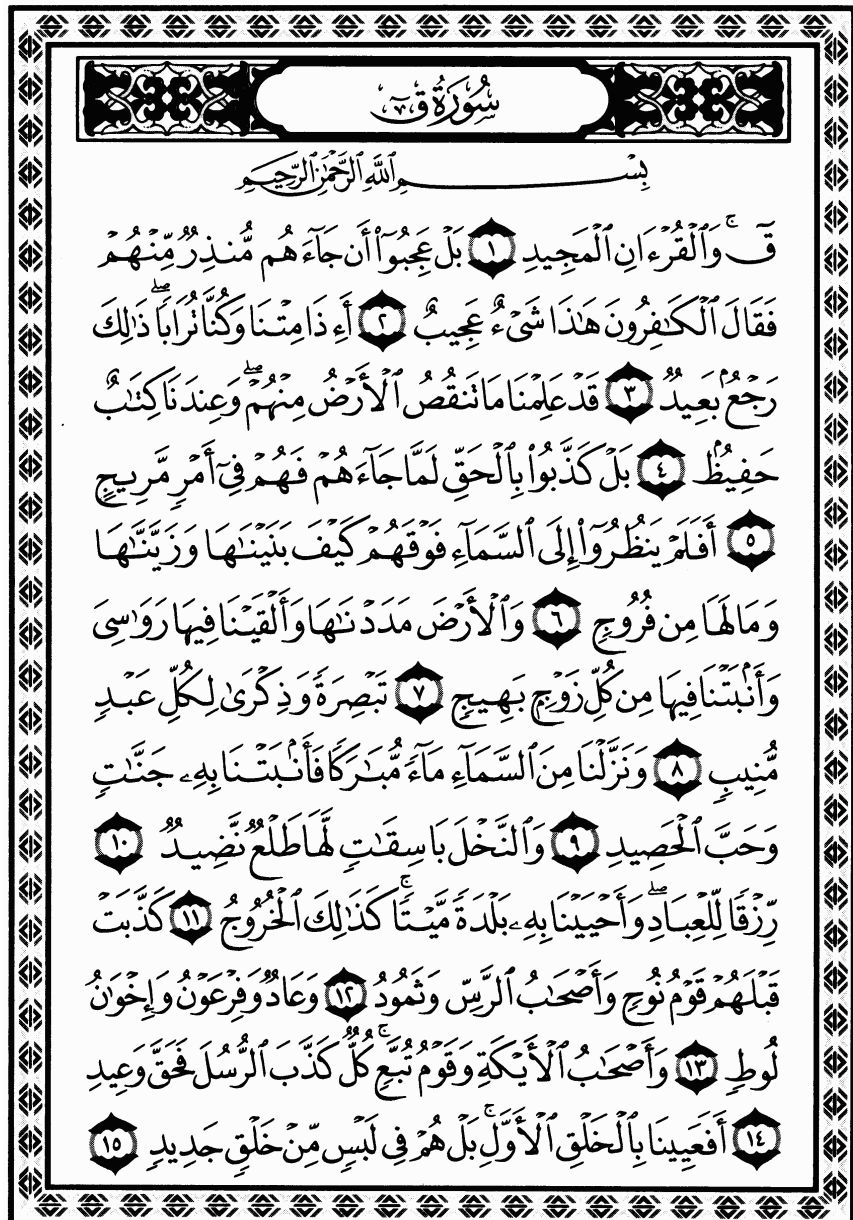 سُورَةُ قٓ
بِسْمِ ٱللَّهِ ٱلرَّحْمَٰنِ ٱلرَّحِيمِ
قٓۚ وَٱلْقُرْءَانِ ٱلْمَجِيدِ ١ بَلْ عَجِبُوٓا۟ أَن جَآءَهُم مُّنذِرٌ مِّنْهُمْ
فَقَالَ ٱلْكَٰفِرُونَ هَٰذَا شَىْءٌ عَجِيبٌ ٢ أَءِذَا مِتْنَا وَكُنَّا تُرَابًاۖ ذَٰلِكَ
رَجْعٌۢ بَعِيدٌ ٣ قَدْ عَلِمْنَا مَا تَنقُصُ ٱلْأَرْضُ مِنْهُمْۖ وَعِندَنَا كِتَٰبٌ
حَفِيظٌۢ ٤ بَلْ كَذَّبُوا۟ بِٱلْحَقِّ لَمَّا جَآءَهُمْ فَهُمْ فِىٓ أَمْرٍ مَّرِيجٍ
٥ أَفَلَمْ يَنظُرُوٓا۟ إِلَى ٱلسَّمَآءِ فَوْقَهُمْ كَيْفَ بَنَيْنَٰهَا وَزَيَّنَّٰهَا
وَمَا لَهَا مِن فُرُوجٍ ٦ وَٱلْأَرْضَ مَدَدْنَٰهَا وَأَلْقَيْنَا فِيهَا رَوَٰسِىَ
وَأَنۢبَتْنَا فِيهَا مِن كُلِّ زَوْجٍۭ بَهِيجٍ ٧ تَبْصِرَةً وَذِكْرَىٰ لِكُلِّ عَبْدٍ
مُّنِيبٍ ٨ وَنَزَّلْنَا مِنَ ٱلسَّمَآءِ مَآءً مُّبَٰرَكًا فَأَنۢبَتْنَا بِهِۦ جَنَّٰتٍ
وَحَبَّ ٱلْحَصِيدِ ٩ وَٱلنَّخْلَ بَاسِقَٰتٍ لَّهَا طَلْعٌ نَّضِيدٌ ١٠
رِّزْقًا لِّلْعِبَادِۖ وَأَحْيَيْنَا بِهِۦ بَلْدَةً مَّيْتًاۚ كَذَٰلِكَ ٱلْخُرُوجُ ١١ كَذَّبَتْ
قَبْلَهُمْ قَوْمُ نُوحٍ وَأَصْحَٰبُ ٱلرَّسِّ وَثَمُودُ ١٢ وَعَادٌ وَفِرْعَوْنُ وَإِخْوَٰنُ
لُوطٍ ١٣ وَأَصْحَٰبُ ٱلْأَيْكَةِ وَقَوْمُ تُبَّعٍۚ كُلٌّ كَذَّبَ ٱلرُّسُلَ فَحَقَّ وَعِيدِ
١٤ أَفَعَيِينَا بِٱلْخَلْقِ ٱلْأَوَّلِۚ بَلْ هُمْ فِى لَبْسٍ مِّنْ خَلْقٍ جَدِيدٍ ١٥